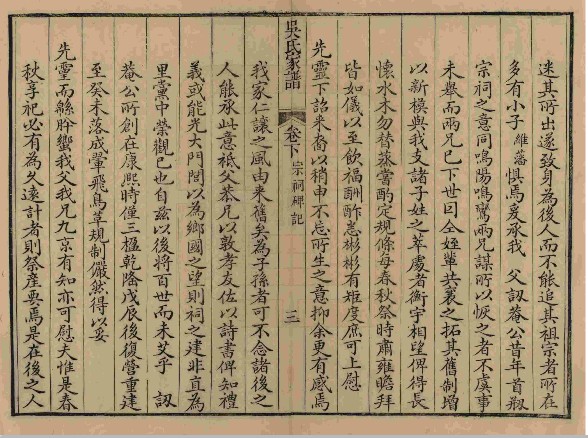 迷其所出遂致身為後人而不能追其祖宗者所在
多有小子維藩惧焉爰承我　父訒菴公昔年首剏
宗祠之意同鳴陽鳴鸞兩兄謀所以恢之者不虞事
未舉而兩兄已下世曰仝姪輩共襄之拓其舊制增
以新模與我支諸子姓之萃處者衡宇相望俾得長
懷水木勿替蒸嘗酌定規條每春秋祭時肅雍瞻拜
皆如儀以至飲福酬酢悉彬彬有矩度庶可上慰
先靈下詔来裔以稍申不忘所生之意抑余更有感焉
吳氏家譜
卷下
宗祠碑記
三
我家仁讓之風由来舊矣為子孫者可不念諸後之
人能承此意祗父恭兄以敦孝友佐以詩書俾知禮
義或能光大門閭以為鄉國之望則祠之建非直為
里黨中榮觀已也自茲以後將百世而未艾乎　訒
菴公所創在康熙時僅三楹乾隆戊辰後復營重建
至癸未落成翬飛鳥革規制儼然得以妥
先靈而緜肹蠁我父我兄九京有知亦可慰夫惟是春
秋享祀必有為久遠計者則祭產要焉是在後之人